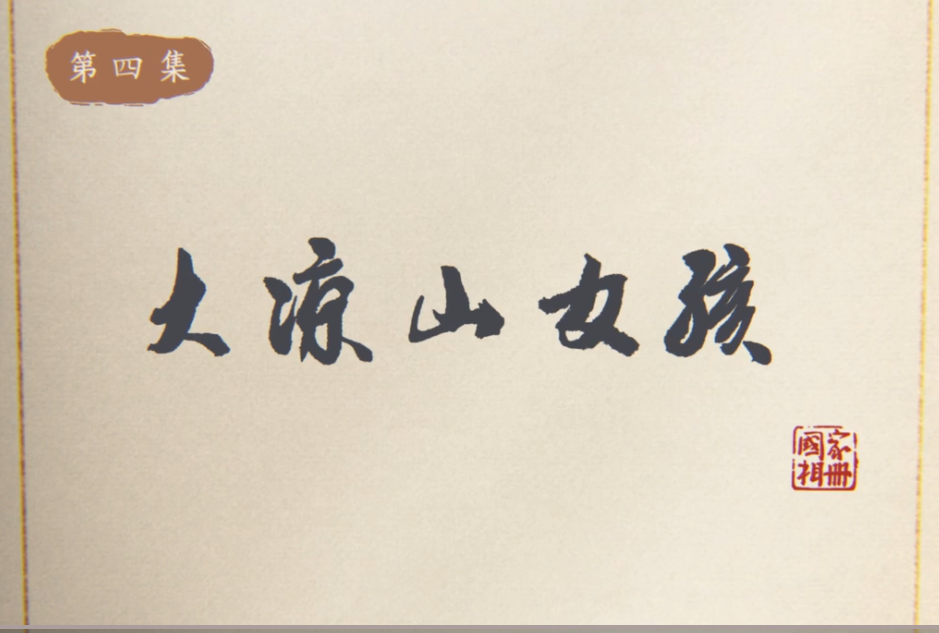 第四集
大凉山女孩
國家
相册